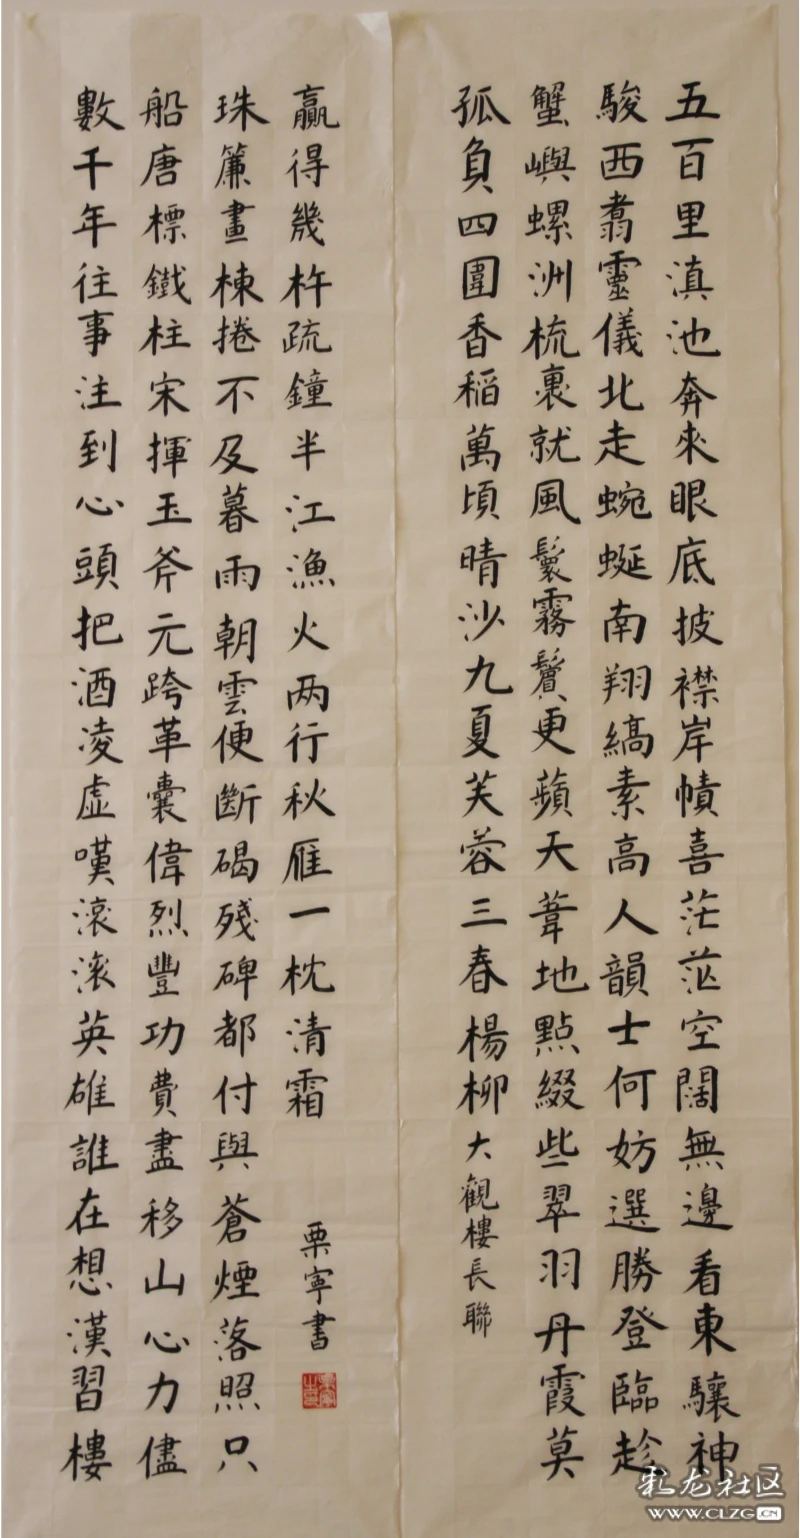 五百里滇池奔來眼底披襟岸幘喜茫茫空闊無邊看東驤神
駿西翥靈儀北走蜿蜒南翔縞素高人韻士何妨選勝登臨趁
蟹嶼螺洲梳裹就風鬟霧鬢更蘋天葦地點綴些翠羽丹霞莫
孤負四圍香稻萬頃晴沙九夏芙蓉三春楊柳
大觀樓長聯
數千年往事注到心頭把酒凌虛嘆滾滾英雄誰在想漢習樓
船唐標鐵柱宋揮玉斧元跨革囊偉烈豐功費盡移山心力儘
珠簾畫棟捲不及暮雨朝雲便斷碣殘碑都付與蒼煙落照只
贏得幾杵疏鐘半江漁火两行秋雁一枕清霜
栗寧書
彩龙社区
WWW.CLZG.CN